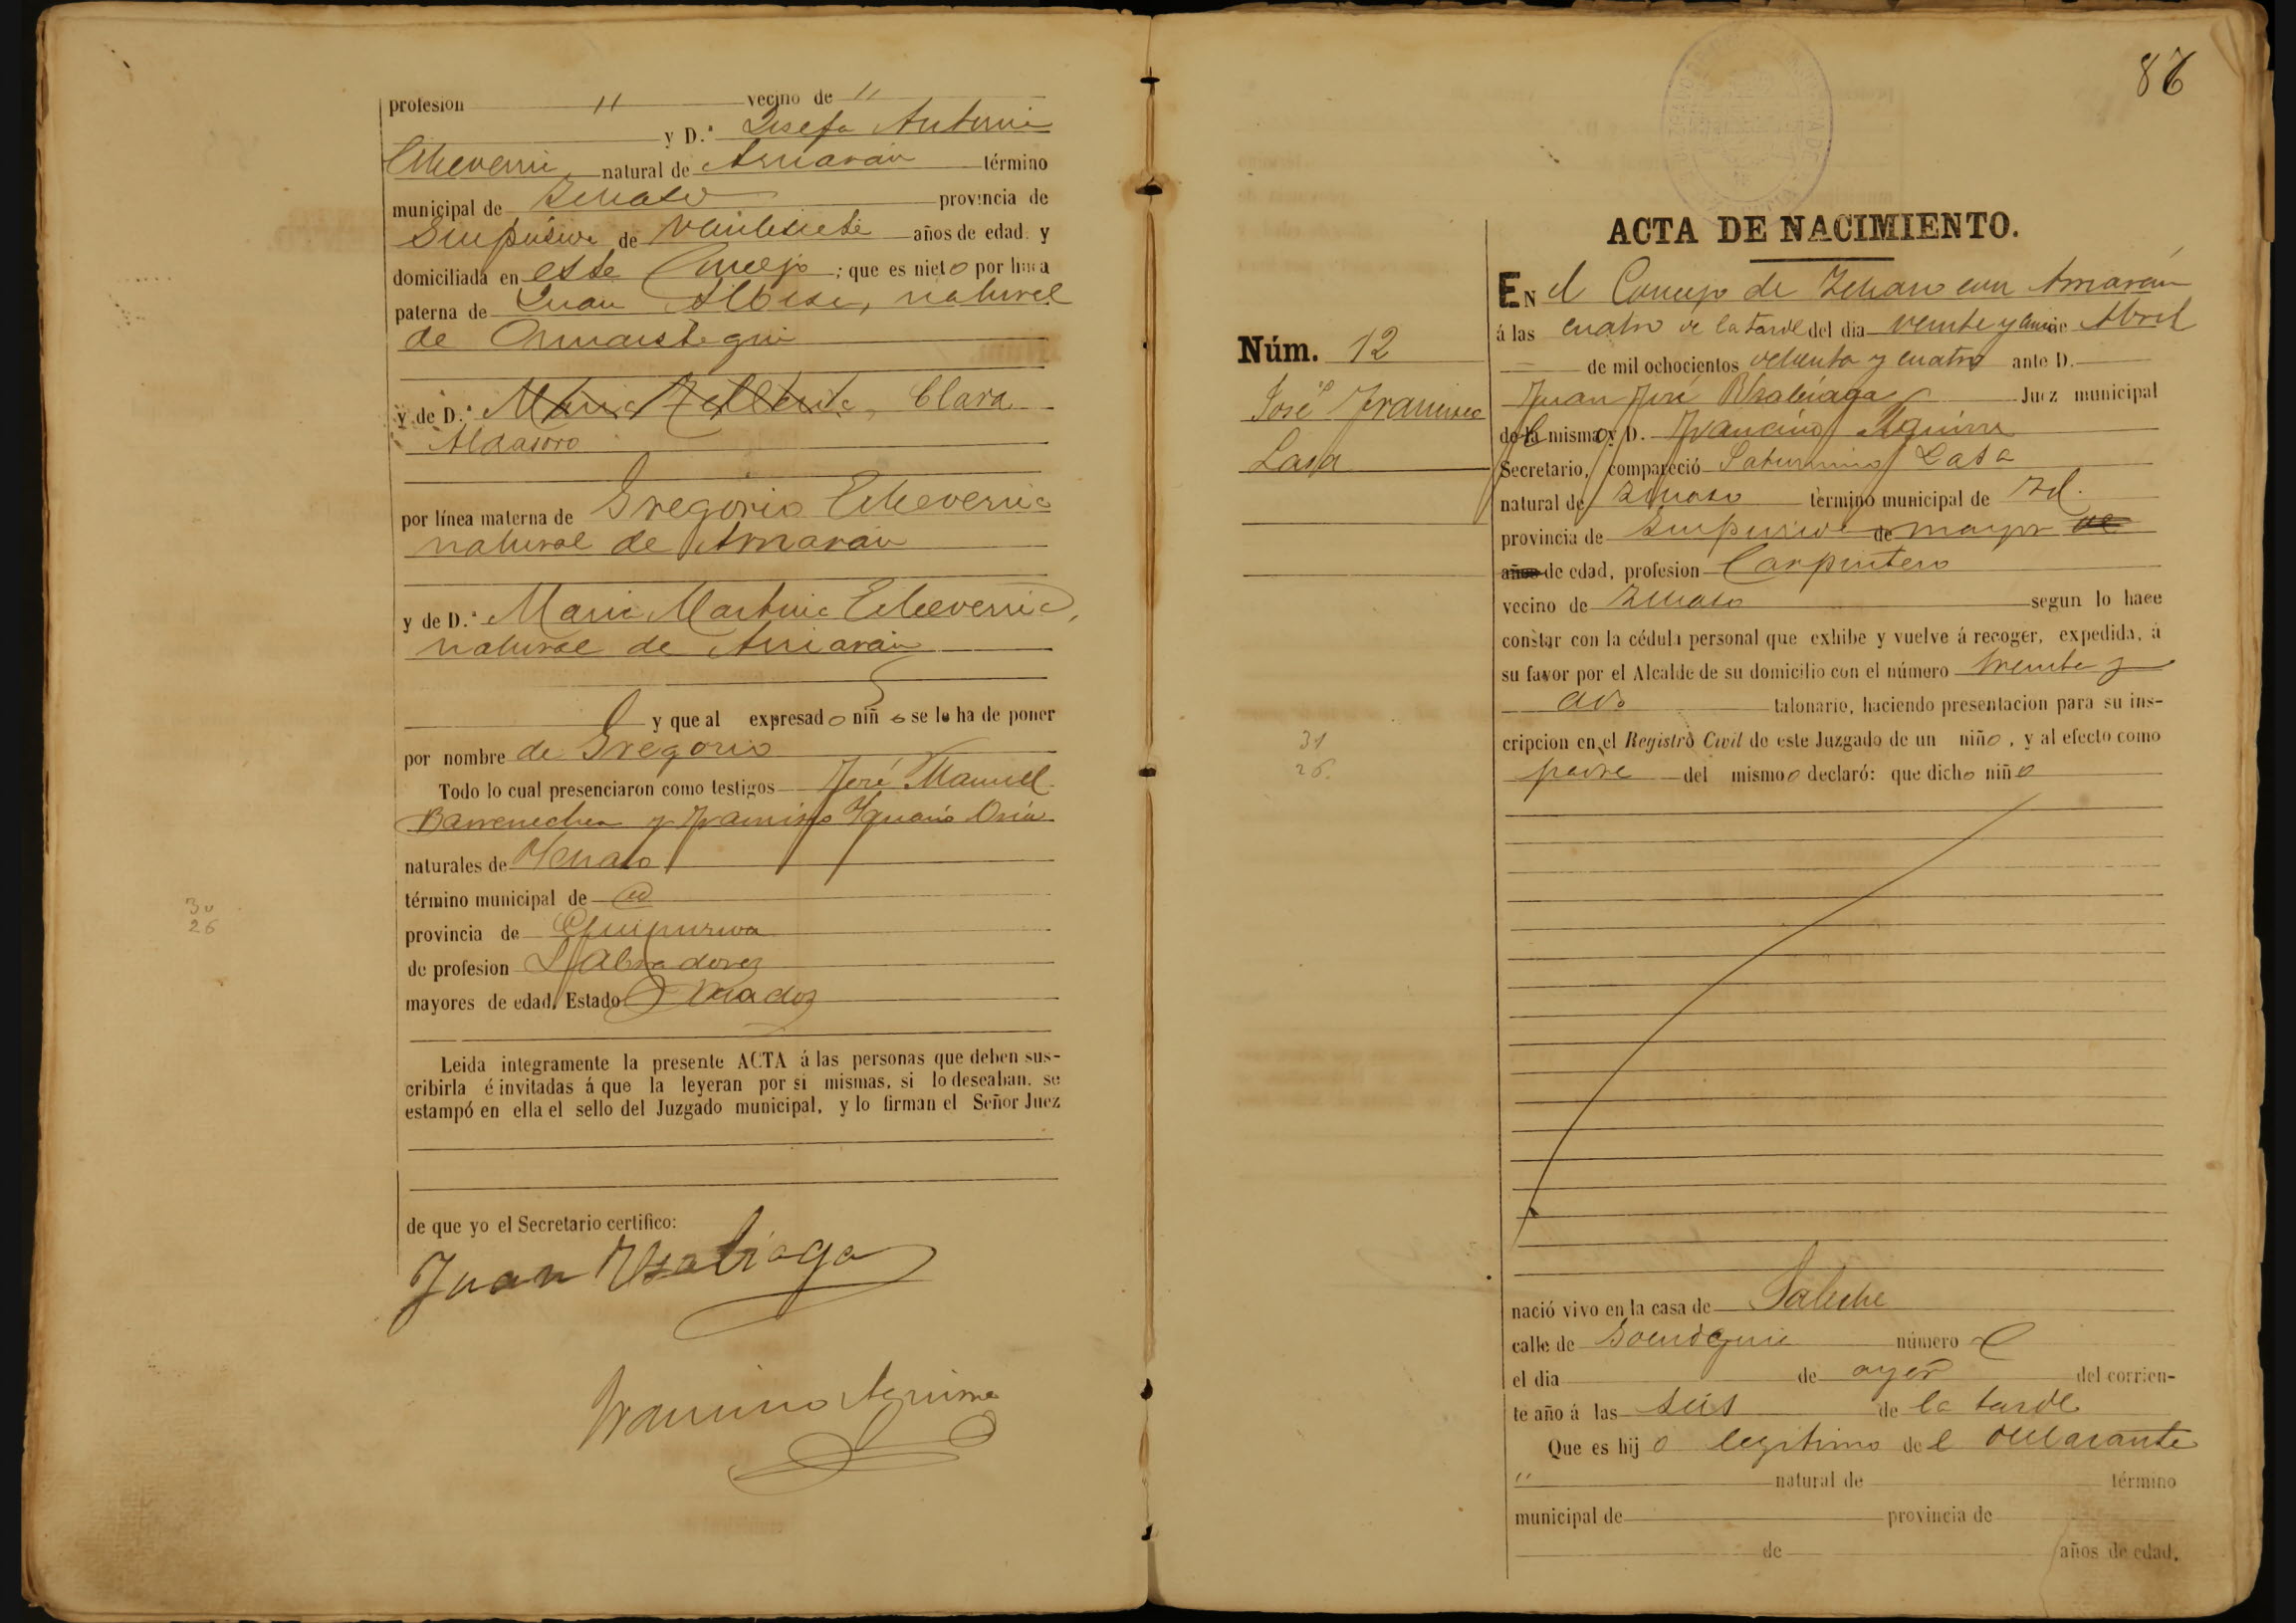 profesion " vecino de "
y D.ª Josefa Antonia
Echeverria natural de Arriarán término
municipal de Ichaso provincia de
Guipúzcoa de veintisiete años de edad y
domiciliada en este Concejo ; que es nieto por linea
paterna de Juan Albisu, natural
de Ormaistegui
y de D.ª Clara
Aldasoro
por línea materna de Gregorio Echeverria
natural de Arriarán
y de D.ª Maria Martina Echeverria,
natural de Arriarán
y que al expresado niño se le ha de poner
por nombre de Gregorio
Todo lo cual presenciaron como testigos José Manuel
Barrenechea y Francisco Ignacio Oria
naturales de Ichaso
término municipal de id
provincia de Guipuzcoa
de profesion Labradores
mayores de edad, Estado
Leida integramente la presente ACTA á las personas que deben sus-
cribirla é invitadas á que la leyeran por si mismas, si lo deseaban, se
estampó en ella el sello del Juzgado municipal, y lo firman el Señor Juez
de que yo el Secretario certifico:
Juan Usabiaga
Francisco Aguirre
30
26
86
ACTA DE NACIMIENTO.
Núm. 12
José Francisco
Lasa
31
26.
EN el Concejo de Ichaso con Arriarán
á las cuatro de la tarde del dia veinte y Abril
de mil ochocientos ochenta y cuatro ante D.
Juan José Usabiaga Juez municipal
del mismo y D. Francisco Aguirre
Secretario, compareció Saturnino Lasa
natural de Ichaso término municipal de Id.
provincia de Guipuzcoa de mayor de
años de edad, profesion Carpintero
vecino de Ichaso segun lo hace
constar con la cédula personal que exhibe y vuelve á recoger, expedida, á
su favor por el Alcalde de su domicilio con el número treinta y
dos talonario, haciendo presentacion para su ins-
cripcion en el Registro Civil de este Juzgado de un niño, y al efecto como
padre del mismo declaró: que dicho niño
nació vivo en la casa de Saleche
calle de número
el dia de ayer del corrien-
te año á las seis de la tarde
Que es hijo legitimo de el declarante
" natural de término
municipal de provincia de
de años de edad,